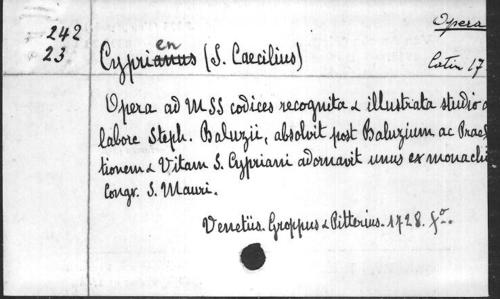 242
23
Opera
Latin 17
Cyprianus en (S. Caecilius)
Opera ad MSS codices recognita & illustrata studio
labore Steph. Baluzii, absolvit post Baluzium ac Prae
tionem & Vitam S. Cypriani adornavit unus ex monachi
Congr. S. Mauri.
Venetiis. Groppus & Pitterius. 1728. fo.